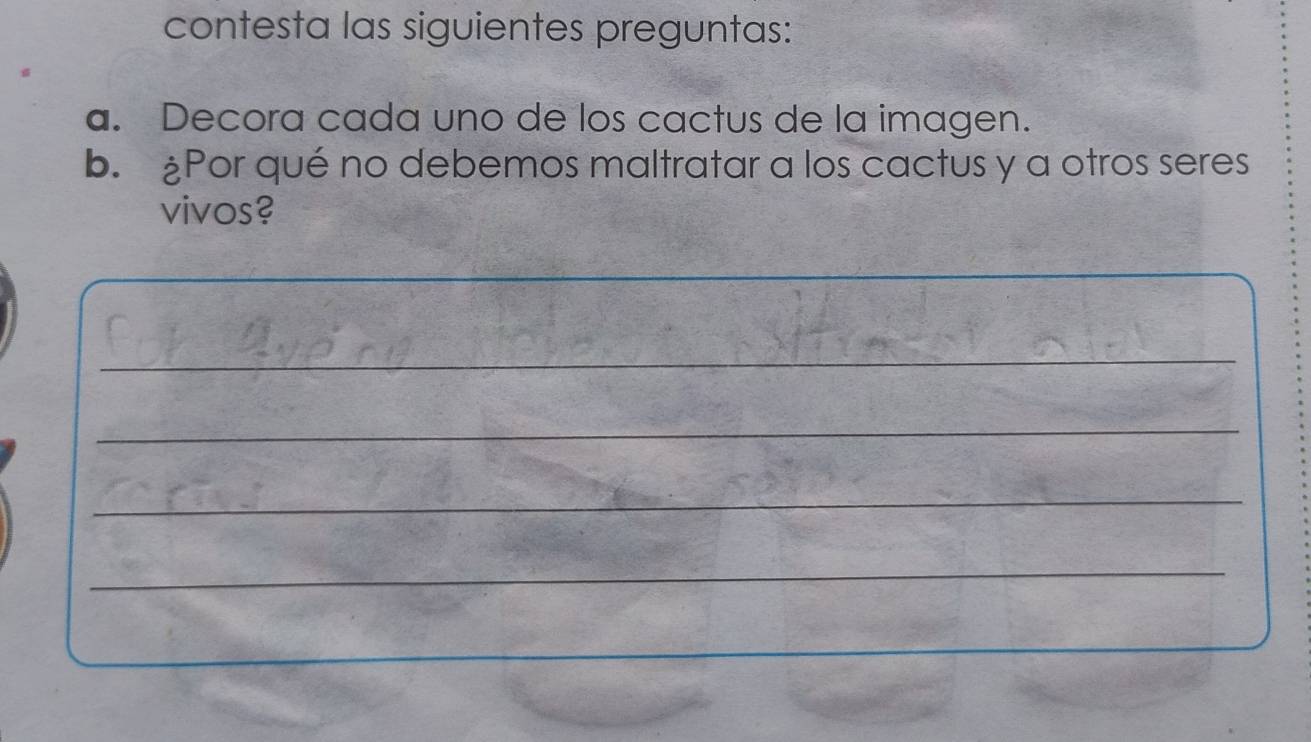 contesta las siguientes preguntas:
a. Decora cada uno de los cactus de la imagen.
b. ¿Por qué no debemos maltratar a los cactus y a otros seres
vivos?